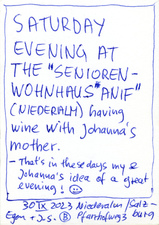 SATURDAY
EVENING AT
THE "SENIOREN-
WOHNHAUS "ANIF"
(NIEDERALM) having
wine with Johanna's
mother.
- That's in these days my &
Johanna's idea of a great
evening! ☺
30 IX 2023 Niederalm/Salz-
Egon + J.S. Ⓑ Pfarrhofweg 3 burg